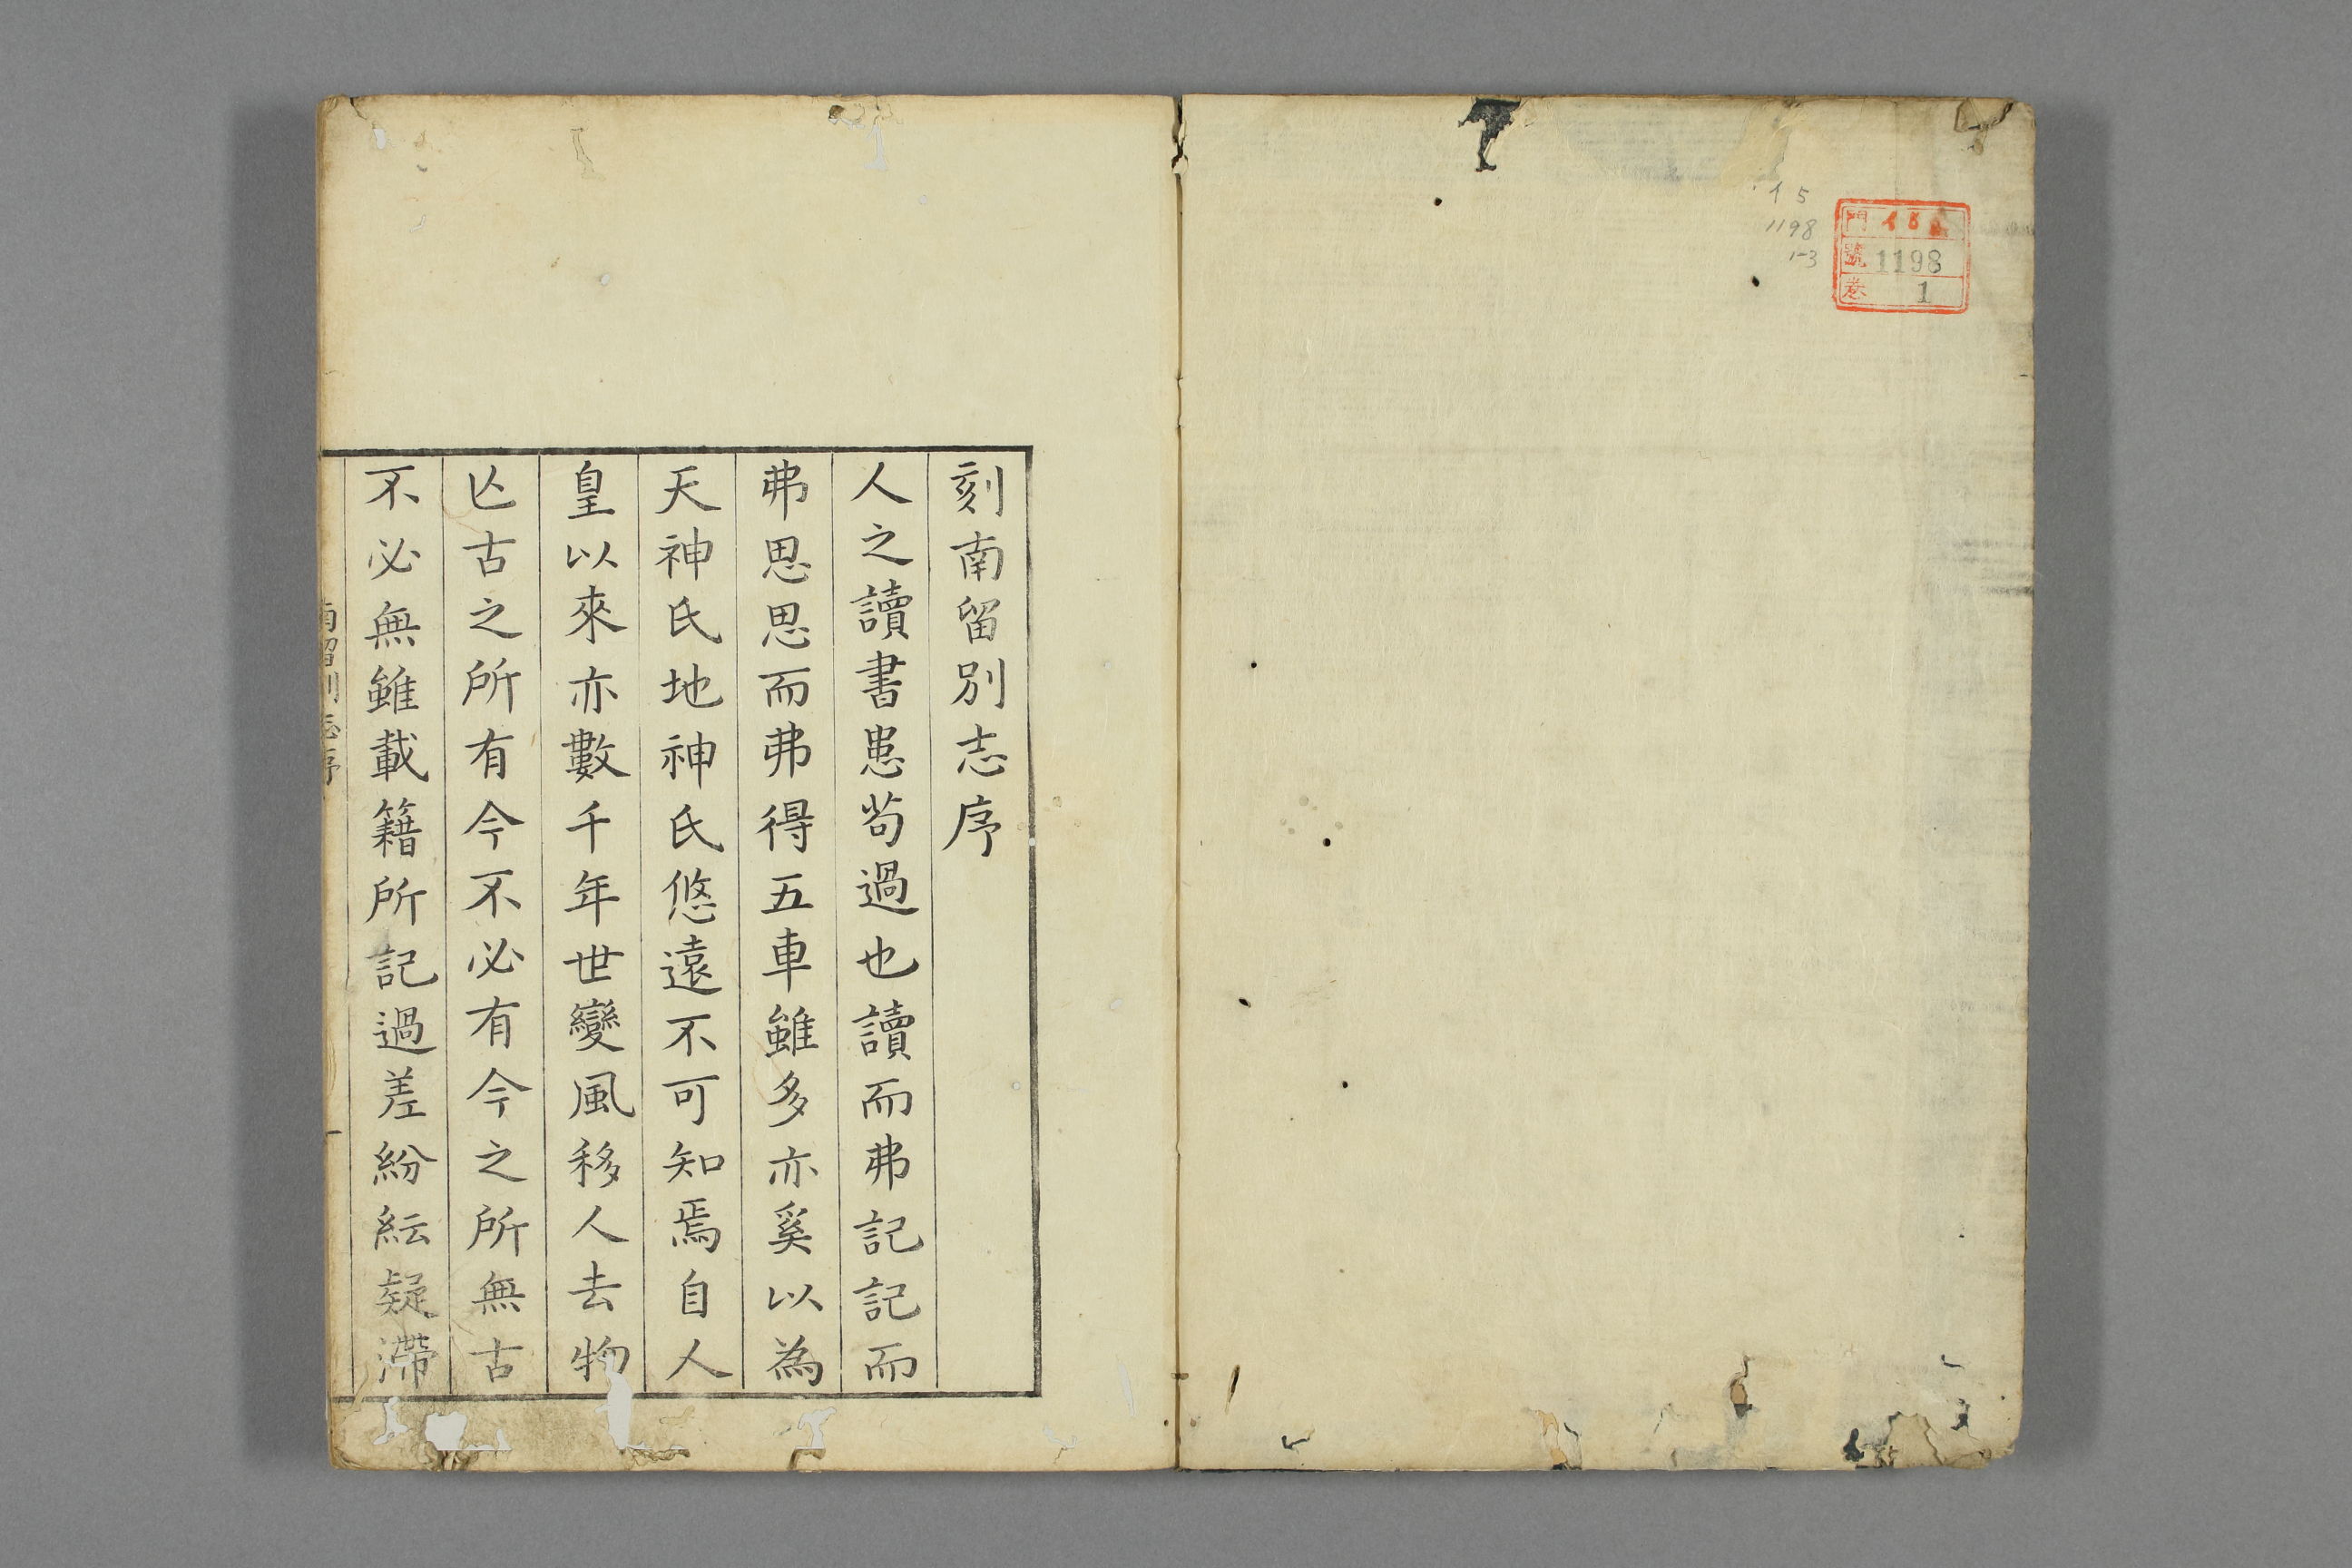 イ5
1198
1-3
門 イ5
號 1198
卷 1
刻南留別志序
人之讀書患苟過也讀而弗記記而
弗思思而弗得五車雖多亦奚以為
天神氏地神氏悠遠不可知焉自人
皇以來亦數千年世變風移人去物
亾古之所有今不必有今之所無古
不必無雖載籍所記過差紛紜疑滯
南留別志序
一